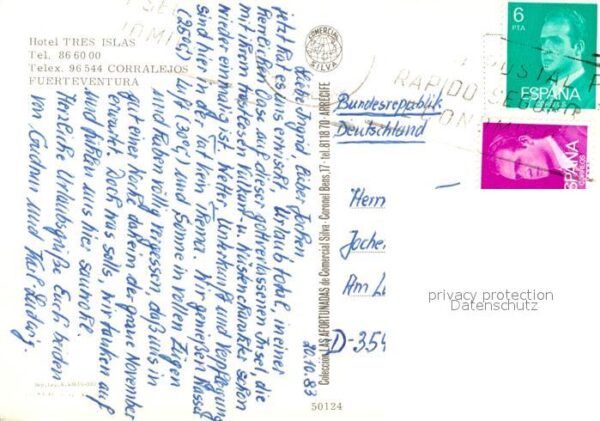 Hotel TRES ISLAS
Tel. 86 60 00
Telex. 96 544 CORRALEJOS
FUERTEVENTURA
20.10.83
Liebe Irmgard, lieber Jochen,
jetzt hat es uns erwischt. Urlaub total, in einer
herrlichen Oase auf dieser gottverlassenen Insel, die
mit ihrem trostlosen Vulkan- u. Wüstencharakter schon
wieder einmalig ist. Wetter, Unterkunft und Verpflegung
sind hier in der Tat kein Thema. Wir genießen Wasser
(25°C), Luft (30°C) und Sonne in vollen Zügen
und haben völlig vergessen, daß uns in
gut einer Woche daheim der graue November
erwartet. Doch was solls, wir tanken auf
und fühlen uns hier sauwohl.
Herzliche Urlaubsgrüße Euch beiden
von Gudrun und Karl Ludwig.
COMERCIAL
SILVA
Colección LAS AFORTUNADAS de Comercial Silva - Coronel Bens, 17 - tel. 81 18 70 ARRECIFE
50124
6
PTA
ESPAÑA
CORREOS
ESPAÑA
CORREOS
POSTAL
RAPIDO SEGURO
Bundesrepublik
Deutschland
Herrn
Joche
Am
D-354
privacy protection
Datenschutz